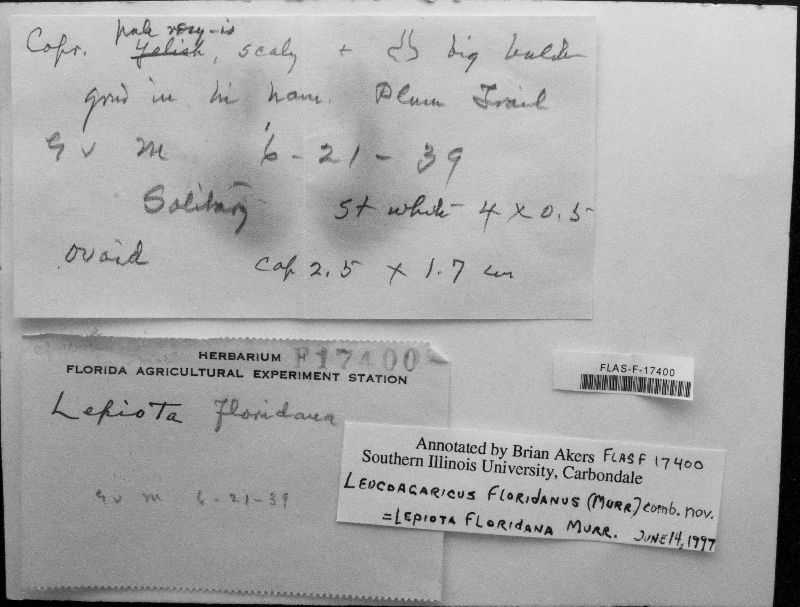 pale rosy-is
Copr. Yelish, scaly +
big
grnd in hi ham. Plum Trail
G v m 6-21-39
Solitary st white 4 x 0.5
ovoid cap 2.5 x 1.7 cm
HERBARIUM F17400
FLORIDA AGRICULTURAL EXPERIMENT STATION
Lepiota floridana
G v m 6-21-39
FLAS-F-17400
Annotated by Brian Akers FLAS F 17400
Southern Illinois University, Carbondale
LEUCOAGARICUS FLORIDANUS (MURR.) comb. nov.
=LEPIOTA FLORIDANA MURR. JUNE 14, 1997